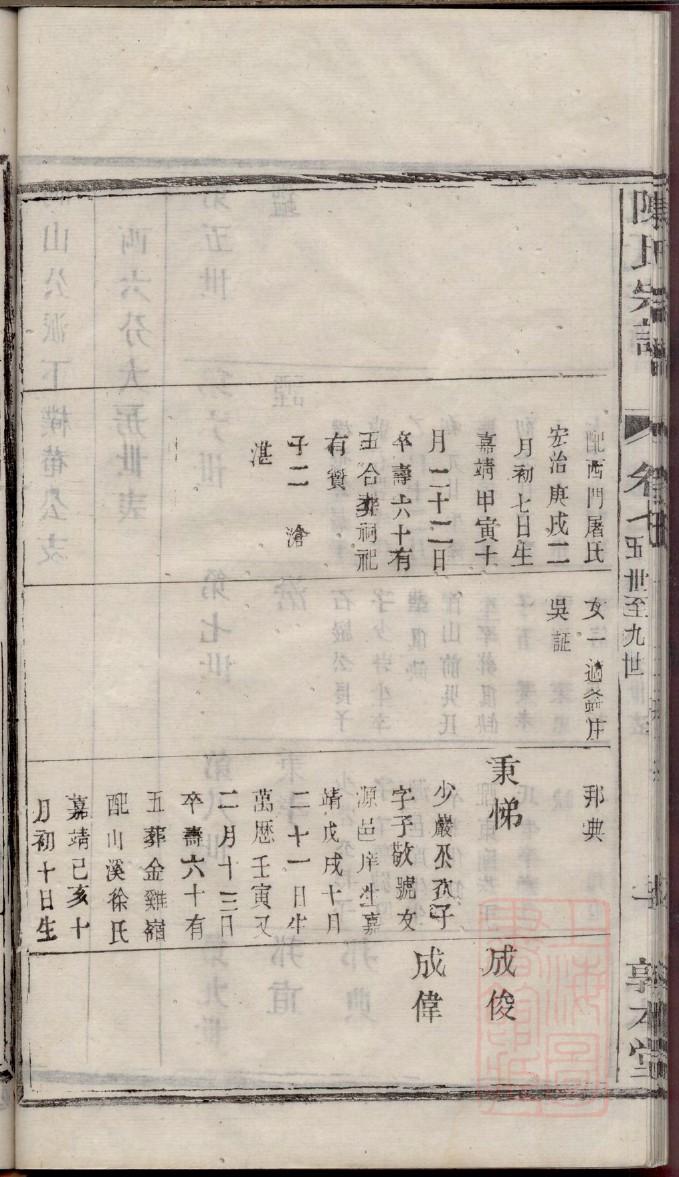 陳氏宗譜
卷七
五世至九世
敦本堂
配西門屠氏
宏治庚戌二
月初七日生
嘉靖甲寅十
月二十二日
卒壽六十有
五合葬祠祀
有贊
子二 滄
湛
女一適
吳証
邦典
秉悌
少嚴公次子
字子敬號文
源邑庠生嘉
靖戊戌十月
二十一日生
萬歷壬寅又
二月十三日
卒壽六十有
五葬金雞嶺
配山溪徐氏
嘉靖己亥十
月初十日生
成俊
成偉